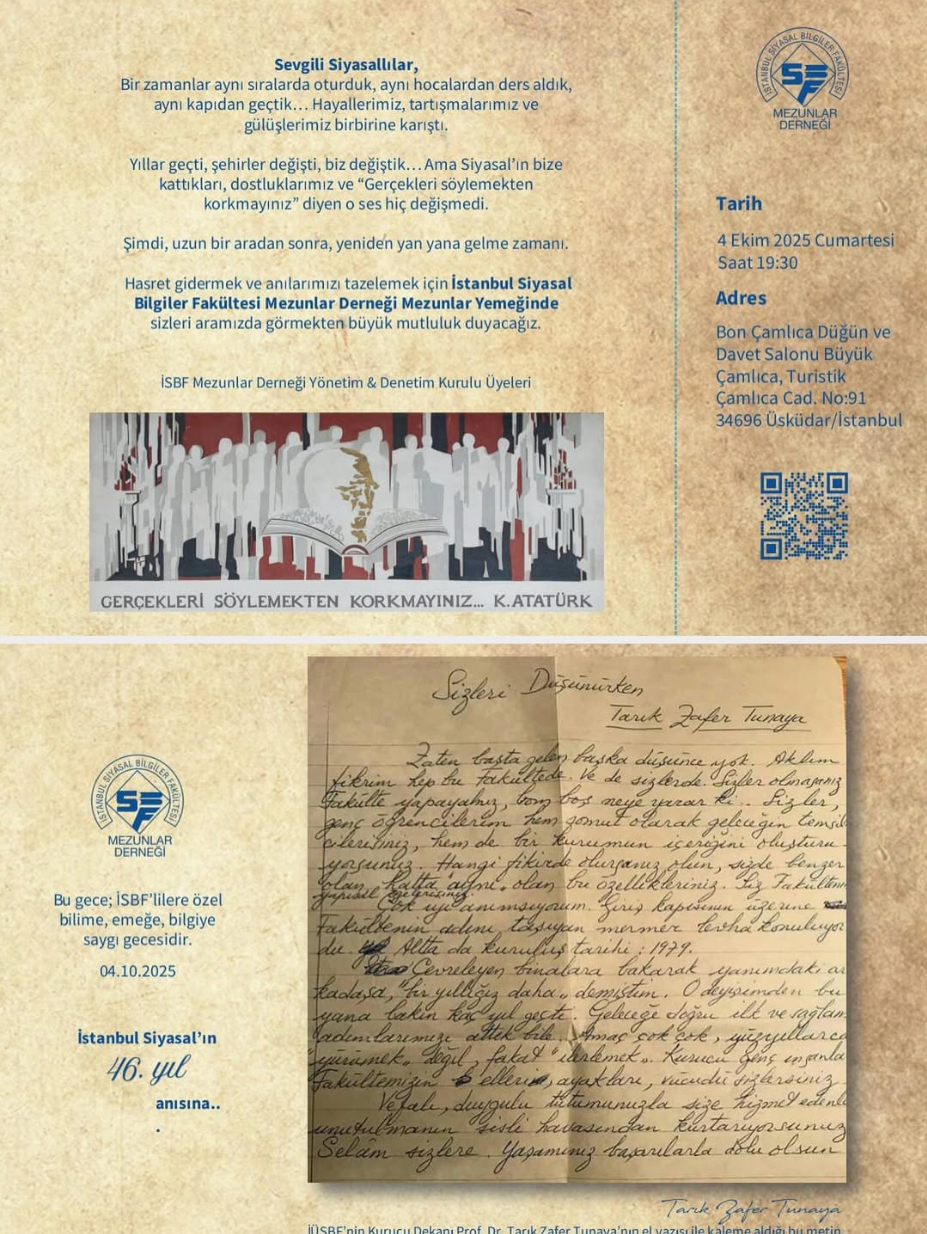 Sevgili Siyasallılar,
Bir zamanlar aynı sıralarda oturduk, aynı hocalardan ders aldık,
aynı kapıdan geçtik... Hayallerimiz, tartışmalarımız ve
gülüşlerimiz birbirine karıştı.
Yıllar geçti, şehirler değişti, biz değiştik... Ama Siyasal'ın bize
kattıkları, dostluklarımız ve “Gerçekleri söylemekten
korkmayınız” diyen o ses hiç değişmedi.
Şimdi, uzun bir aradan sonra, yeniden yan yana gelme zamanı.
Hasret gidermek ve anılarımızı tazelemek için İstanbul Siyasal
Bilgiler Fakültesi Mezunlar Derneği Mezunlar Yemeğinde
sizleri aramızda görmekten büyük mutluluk duyacağız.
İSBF Mezunlar Derneği Yönetim & Denetim Kurulu Üyeleri
GERÇEKLERİ SÖYLEMEKTEN KORKMAYINIZ... K.ATATÜRK
İSTANBUL SİYASAL BİLGİLER FAKÜLTESİ
SBF
MEZUNLAR
DERNEĞİ
Tarih
4 Ekim 2025 Cumartesi
Saat 19:30
Adres
Bon Çamlıca Düğün ve
Davet Salonu Büyük
Çamlıca, Turistik
Çamlıca Cad. No:91
34696 Üsküdar/İstanbul
İSTANBUL SİYASAL BİLGİLER FAKÜLTESİ
SBF
MEZUNLAR
DERNEĞİ
Bu gece; İSBF'lilere özel
bilime, emeğe, bilgiye
saygı gecesidir.
04.10.2025
İstanbul Siyasal'ın
46. yıl
anısına..
.
Sizleri Düşünürken
Tarık Zafer Tunaya
Zaten başta gelen başka düşünce yok. Aklım
fikrim hep bu Fakültede. Ve de sizlerde. Sizler olmasanız
Fakülte yapayalnız, bom boş neye yarar ki.. Sizler,
genç öğrencilerim hem somut olarak geleceğin temsil
cilerisiniz, hem de bir kurumun içeriğini oluşturu-
yorsunuz. Hangi fikirde olursanız olun, sizde benzer
olan, hatta "aynı" olan bu özellikleriniz. Siz Fakültemi
yapısal
Çok iyi anımsıyorum. Giriş kapısının üzerine
Fakültenin adını taşıyan mermer levha konuluyor
du. Altta da kuruluş tarihi: 1979.
Çevreleyen binalara bakarak yanımdaki ar
kadaşa, "bir yıllığız daha" demiştim. O deyişimden bu
yana bakın kaç yıl geçti. Geleceğe doğru ilk ve sağlam
adımlarımızı attık bile.. Amaç çok çok, yüzyıllarca
"yürümek" değil, fakat "ilerlemek". Kurucu genç insanla
Fakültemizin elleri, ayakları, vücudu sizlersiniz
Vefalı, duygulu tutumunuzla size hizmet edenle
unutulmanın sisli havasından kurtarıyorsunuz
Selâm sizlere. Yaşamınız başarılarla dolu olsun
Tarık Zafer Tunaya
İÜSBF'nin Kurucu Dekanı Prof. Dr. Tarık Zafer Tunaya'nın el yazısı ile kaleme aldığı bu metin